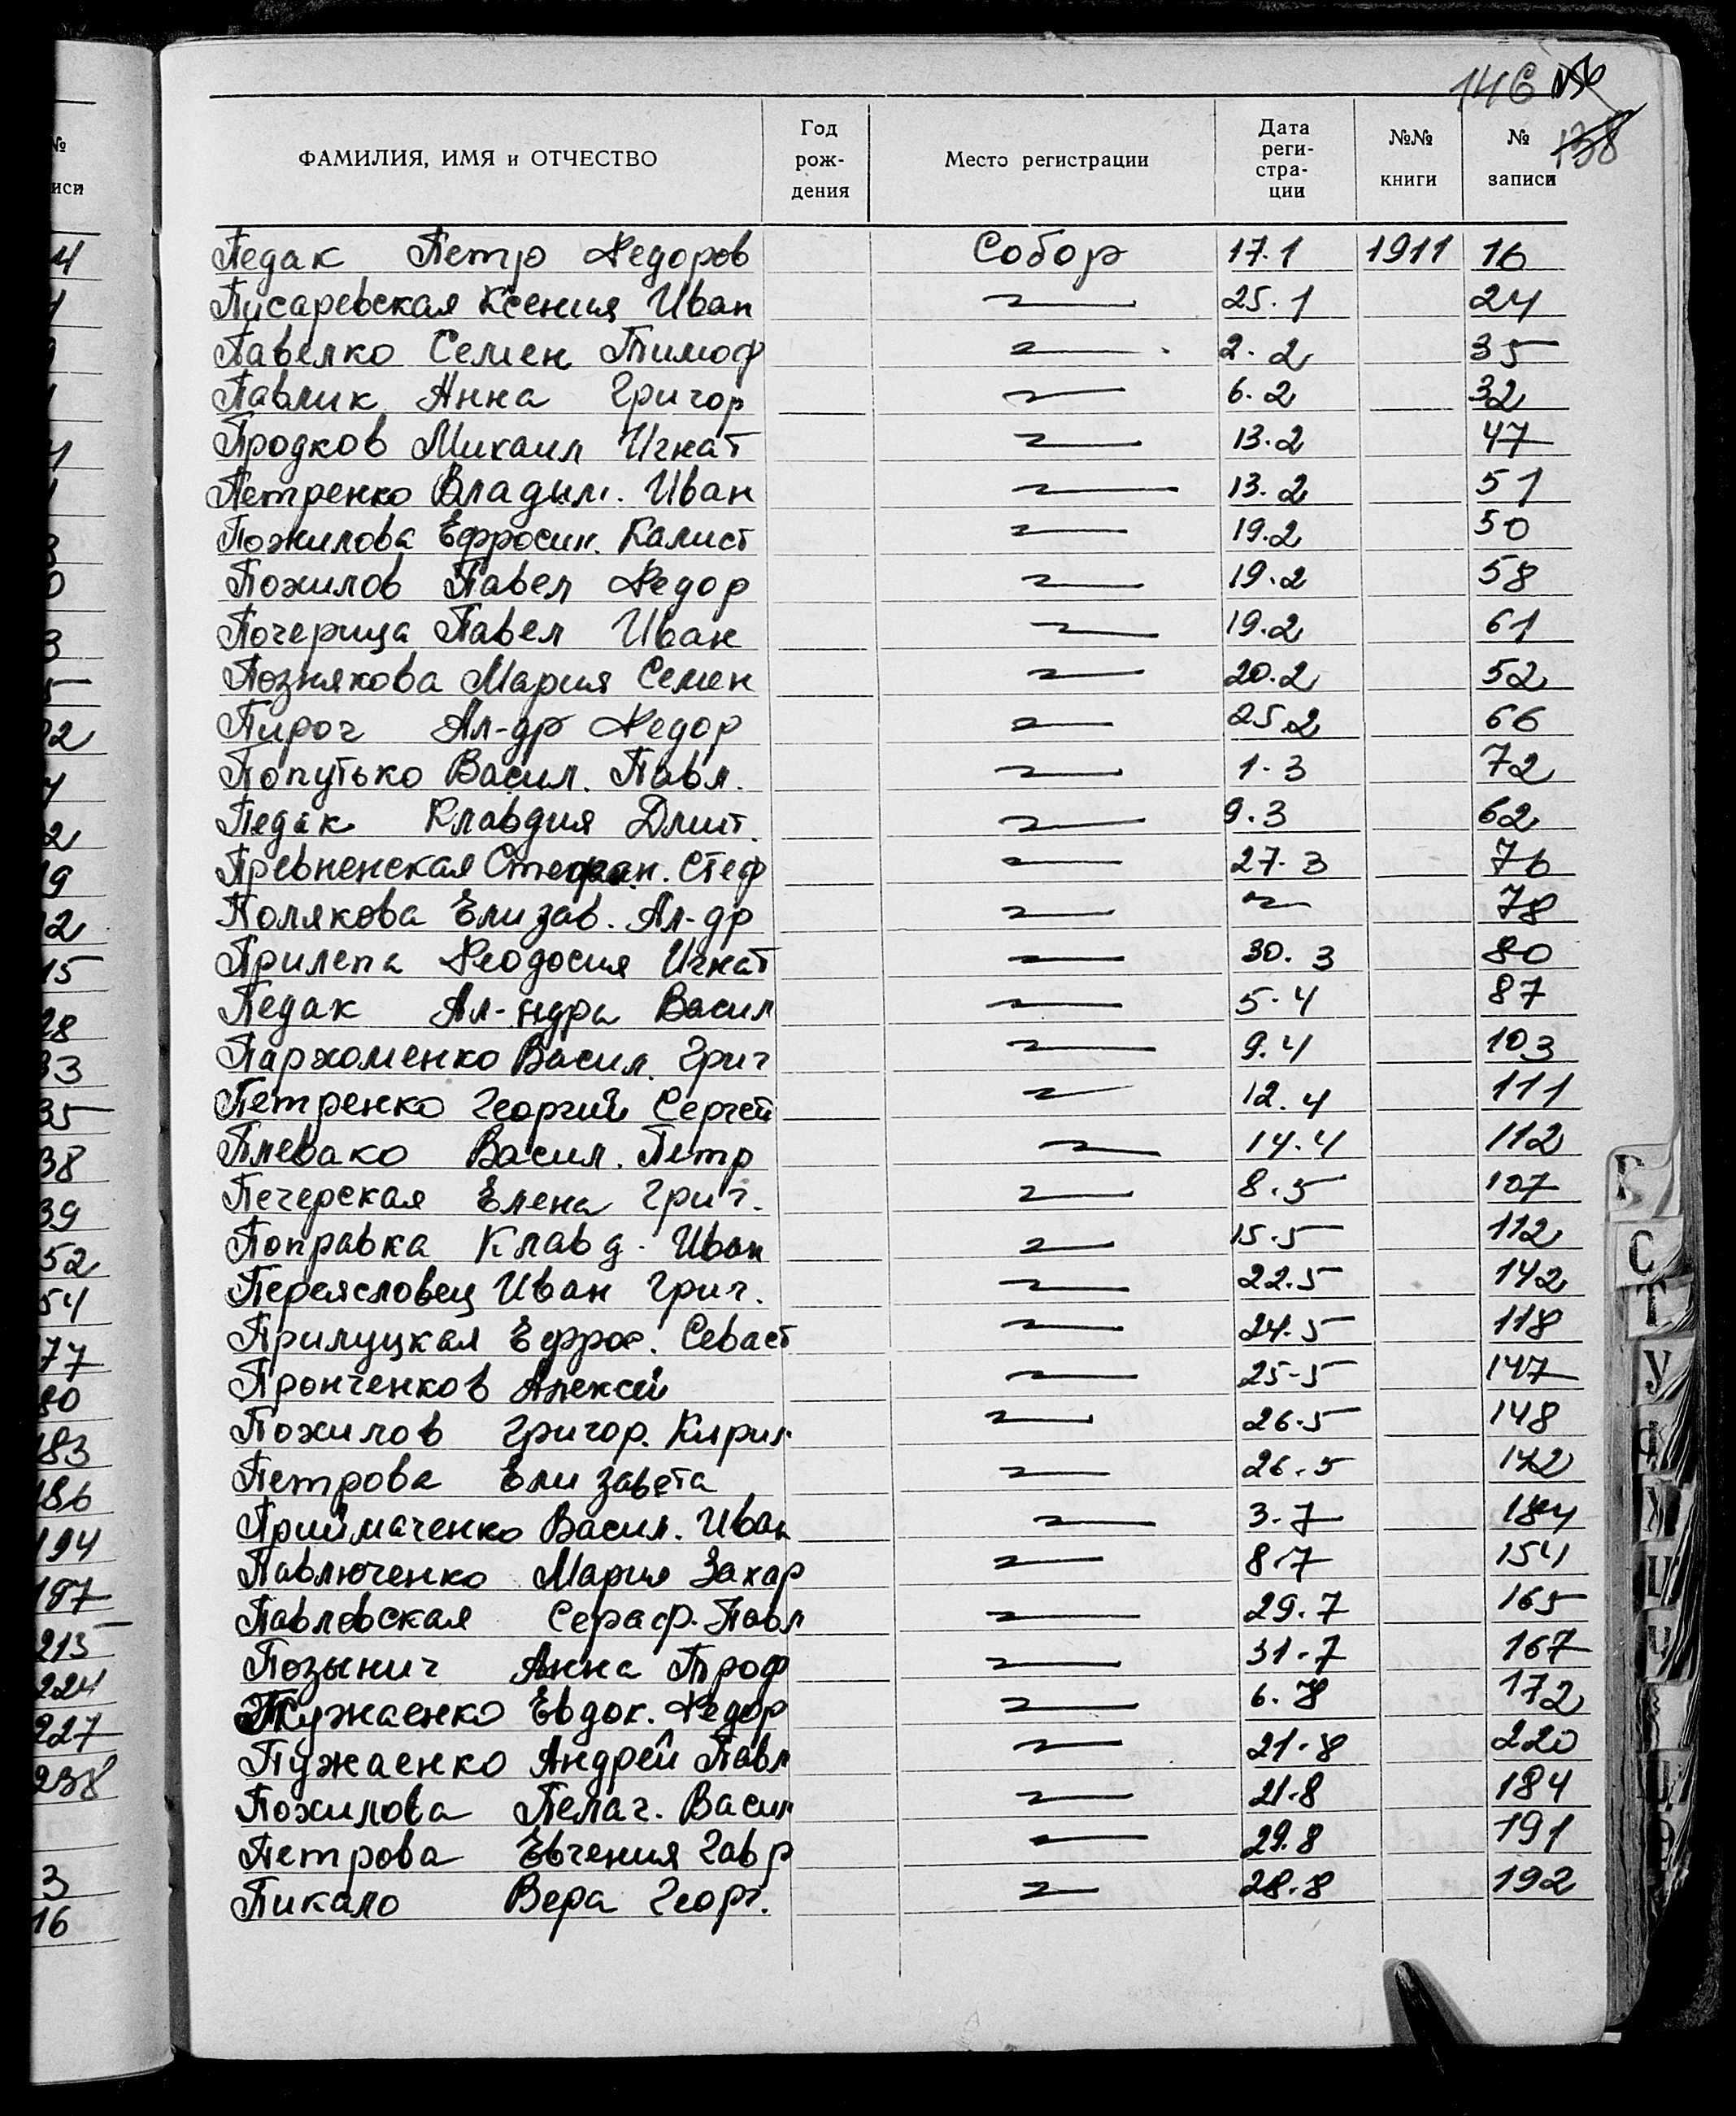 146
138
ФАМИЛИЯ, ИМЯ и ОТЧЕСТВО Год рож- дения Место регистрации Дата реги- стра- ции №№ книги № записи
Педак Петр Федоров Собор 17.1 1911 16
Писаревская Ксения Иван 25.1 24
Павелко Семен Тимоф 2.2 35
Павлик Анна Григор 6.2 32
Продков Михаил Игнат 13.2 47
Петренко Владим. Иван 13.2 51
Пожилова Ефросин. Калист 19.2 50
Пожилов Павел Федор 19.2 58
Почерица Павел Иван 19.2 61
Познякова Мария Семен 20.2 52
Пирог Ал-др Федор 25.2 66
Попутько Васил. Павл. 1.3 72
Педак Клавдия Дмит. 9.3 62
Превненская Стефан. Стеф 27.3 76
Полякова Елизав. Ал-др 78
Прилепа Феодосия Игнат 30.3 80
Педак Ал-ндра Васил 5.4 87
Пархоменко Васил. Григ 9.4 103
Петренко Георгий Сергей 12.4 111
Плевако Васил. Петр 14.4 112
Печерская Елена Григ. 8.5 107
Поправка Клавд. Иван 15.5 112
Переясловец Иван Григ. 22.5 142
Прилуцкая Ефрос. Севаст 24.5 118
Пронченков Алексей 25-5 147
Пожилов Григор. Кирил 26.5 148
Петрова Елизавета 26.5 142
Приймаченко Васил. Иван 3.7 184
Павлюченко Мария Захар 8.7 154
Павлевская Сераф. Павл 29.7 165
Позынич Анна Троф 31.7 167
Пужаенко Евдок. Федор 6.8 172
Пужаенко Андрей Павл 21.8 220
Пожилова Пелаг. Васил 21.8 184
Петрова Евгения Гавр 29.8 191
Пикало Вера Георг. 28.8 192